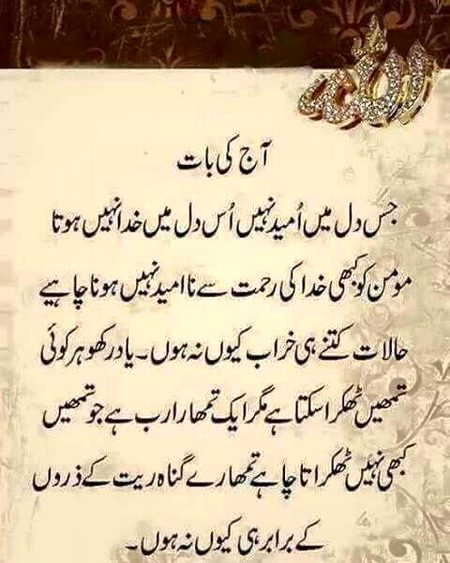 الله
آج کی بات
جس دل میں اُمید نہیں اُس دل میں خدا نہیں ہوتا
مومن کو کبھی خدا کی رحمت سے ناامید نہیں ہونا چاہیے
حالات کتنے ہی خراب کیوں نہ ہوں۔ یاد رکھو ہر کوئی
تمھیں ٹھکرا سکتا ہے مگر ایک تمھارا رب ہے جو تمھیں
کبھی نہیں ٹھکراتا چاہے تمھارے گناہ ریت کے ذروں
کے برابر ہی کیوں نہ ہوں۔